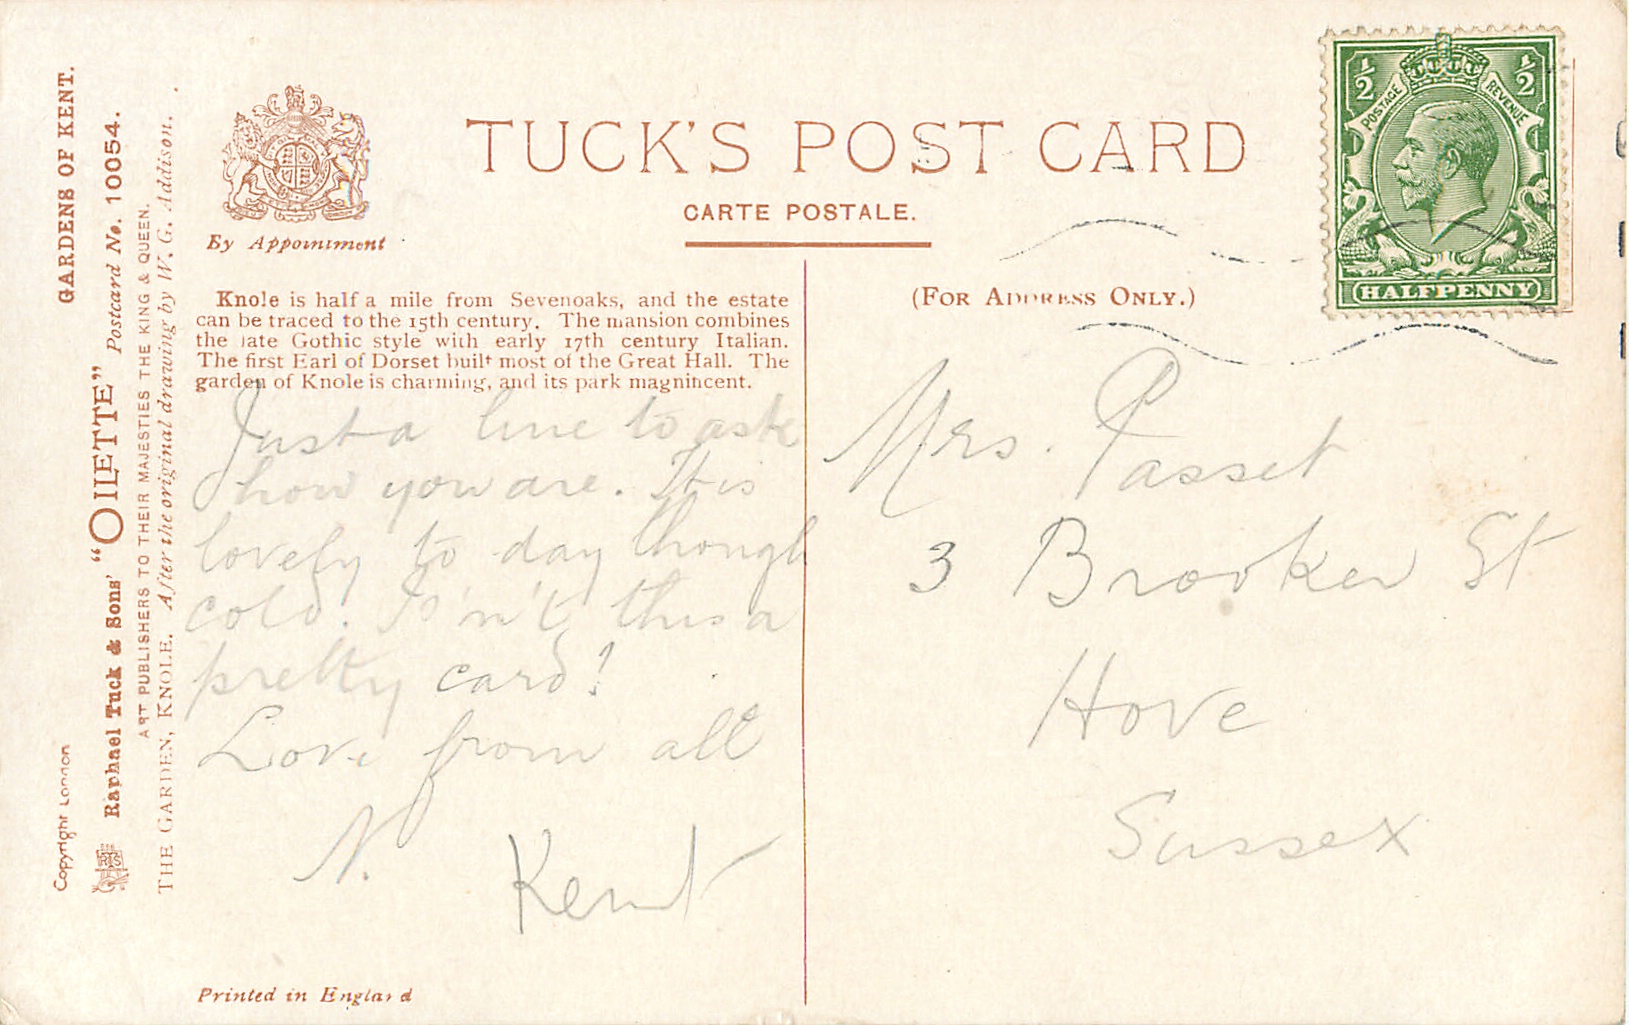 GARDENS OF KENT.
Raphael Tuck & Sons' "OILETTE" Postcard No. 10054.
ART PUBLISHERS TO THEIR MAJESTIES THE KING & QUEEN.
THE GARDEN, KNOLE. After the original drawing by W. G. Addison.
Copyright London
By Appointment
TUCK'S POST CARD
CARTE POSTALE.
POSTAGE
REVENUE
½
½
HALFPENNY
Knole is half a mile from Sevenoaks, and the estate
can be traced to the 15th century. The mansion combines
the late Gothic style with early 17th century Italian.
The first Earl of Dorset built most of the Great Hall. The
garden of Knole is charming, and its park magnificent.
Just a line to ask
how you are. It is
lovely to day though
cold. Is'n't this a
pretty card!
Love from all
N. Kent
Printed in England
(FOR ADDRESS ONLY.)
Mrs. Passet
3 Brooker St
Hove
Sussex